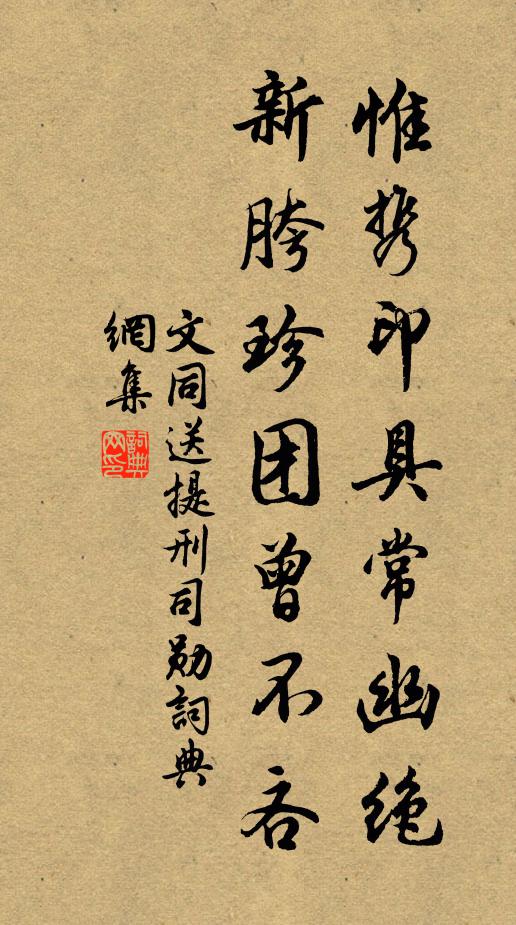 惟携印具常幽绝
新胯珍团曾不吝
文同送提刑司勋詞典
網集
詞典
网印